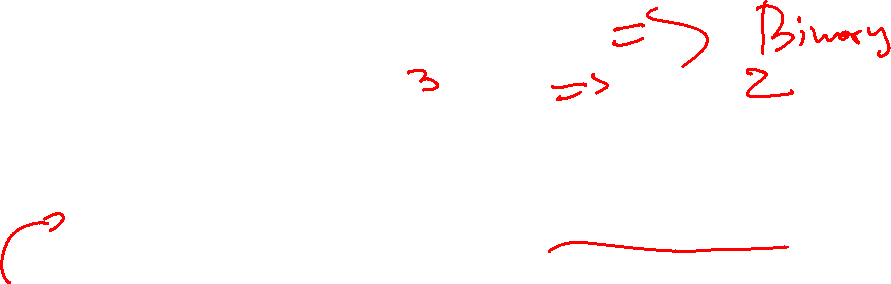 => Binary
3 => 2